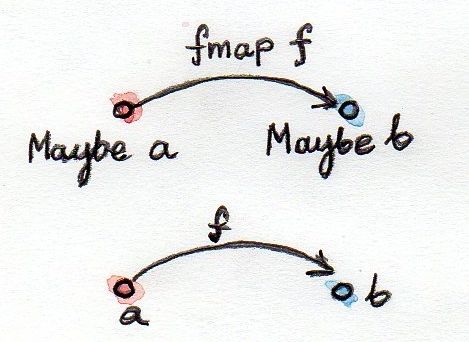 fmap f
Maybe a
Maybe b
f
a
b